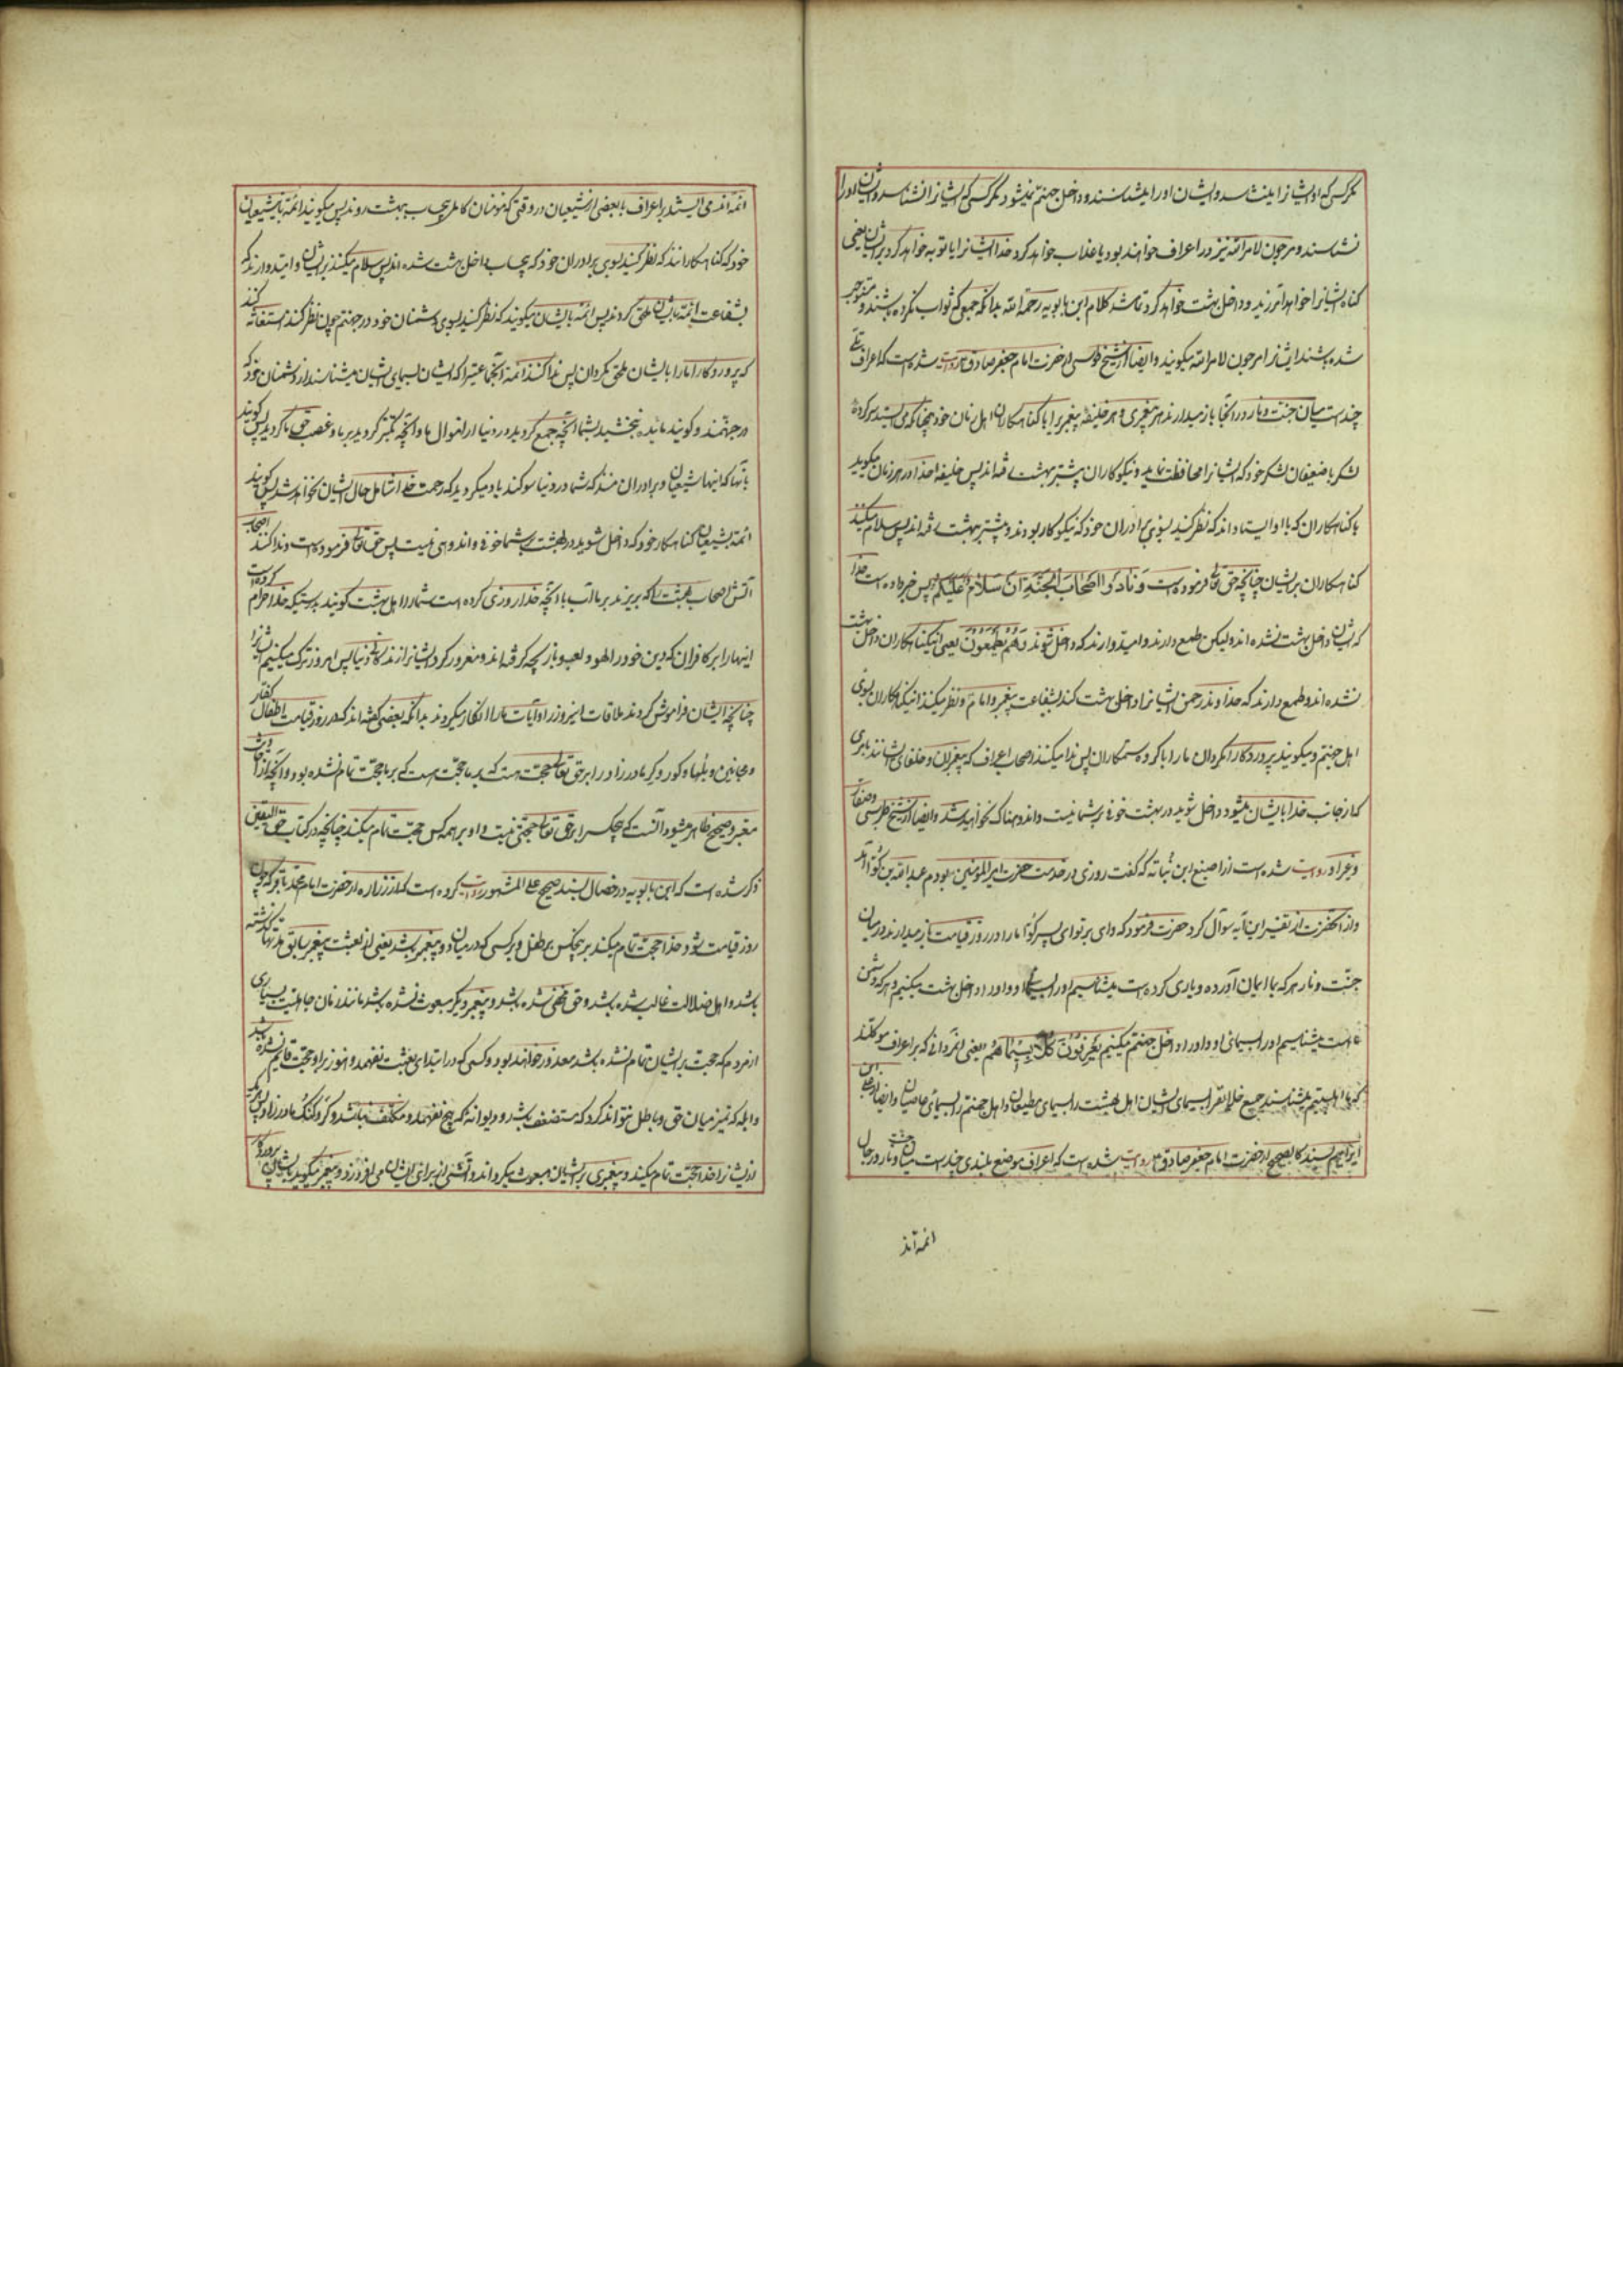 مگر کسی که او ایشانرا بشناسد و ایشان او را بشناسند و داخل جهنم نمیشود مگر کسی که ایشانرا نشناسد و ایشان او را
نشناسند و مرجون لامر الله نیز در اعراف خواهند بود یا عذاب خواهد کرد خدا ایشانرا یا توبه خواهد کرد بر ایشان یعنی
کناه ایشانرا خواهد آمرزید و داخل بهشت خواهد کرد تمام شد کلام ابن بابویه رحمه الله بدانکه جمعی که ثواب نکرده باشند و مستوجب
شده باشند ایشانرا مرجون لامر الله میکویند و ایضا از شیخ طوسی از حضرت امام جعفر صادق ع روایت شده است که اعراف تلی
چند است میان جنت و نار و در آنجا باز میدارند هر پیغمبری و هر خلیفه پیغمبری را با کناهکاران اهل زمان خود چنانچه می ایستد سرکرده
لشکر با ضعیفان لشکر خود که ایشانرا محافظت نماید و نیکوکاران پیشتر بهشت رفته اند پس خلیفه خدا در هر زمان میکوید
با کناهکاران که با او ایستاده اند که نظر کنید بسوی برادران خود که نیکوکار بودند و پیشتر بهشت رفته اند پس سلام میکنند
کناهکاران بر ایشان چنانچه حق تعالی فرموده است وَنَادَوْا اَصْحَابَ الْجَنَّةِ اَنْ سَلَامٌ عَلَیْکُمْ پس خبر داده است خدا
که ایشان داخل بهشت نشده اند ولیکن طمع دارند و امیدوارند که داخل شوند وَهُمْ یَطْمَعُونَ یعنی این کناهکاران داخل بهشت
نشده اند و طمع دارند که خداوند رحمن ایشانرا داخل بهشت کند بشفاعت پیغمبر و امام و نظر میکنند این کناهکاران بسوی
اهل جهنم و میکویند پروردکارا مکردان ما را با کروه ستمکاران پس ندا میکنند اصحاب اعراف که پیغمبران و خلفای ایشانند
که از جانب خدا بایشان میشود داخل شوید در بهشت خوفی بر شما نیست و اندوهناک نخواهید شد و ایضا از شیخ طبرسی و صفار
و غیر او روایت شده است از اصبغ ابن نباته که گفت روزی در خدمت حضرت امیرالمومنین ع بودم عبدالله بن کوا آمد
و از آنحضرت از تفسیر این آیه سوال کرد حضرت فرمود که وای بر تو ای پسر کوا ما را در روز قیامت باز میدارند در میان
جنت و نار هر که بما ایمان آورده و یاری کرده است میشناسیم او را بسیمای او و او را داخل بهشت میکنیم و هر که دشمن
ما است میشناسیم او را بسیمای او و او را داخل جهنم میکنیم یَعْرِفُونَ کُلًّا بِسِیمَاهُمْ یعنی مردانی که بر اعراف موکلند
که ما اهلبیتیم میشناسند جمیع خلایق را بسیمای ایشان اهل بهشت را بسیمای مطیعان و اهل جهنم را بسیمای عاصیان و ایضا از علی ابن
ابراهیم بسند کالصحیح از حضرت امام جعفر صادق ع روایت شده است که اعراف موضع بلندی چند است میان جنت و نار و رجال
ائمه اند
ائمه اند می ایستند بر اعراف با بعضی از شیعیان در وقتی که مؤمنان کامل بیحساب بهشت روند پس میکویند ائمه با شیعیان
خود که کناهکارانند که نظر کنید بسوی برادران خود که بیحساب داخل بهشت شده اند پس سلام میکنند بر ایشان و امیدوارند که
بشفاعت ائمه بایشان ملحق کردند پس ائمه بایشان میکویند که نظر کنید بسوی دشمنان خود در جهنم چون نظر کنند استغاثه کنند
که پروردکارا ما را بایشان ملحق مکردان پس ندا کنند ائمه آنجماعتیرا که ایشان بسیمای ایشان میشناسند از دشمنان خود که
در جهنمند و کویند فایده نبخشید بشما آنچه جمع کردید در دنیا از اموال ما و آنچه تکبر کردید بر ما و غصب حق ما کردید پس کویند
بآنها که اینها شیعیان و برادران منند که شما در دنیا سوکند یاد میکردید که رحمت خدا شامل حال ایشان نخواهد شد پس کویند
ائمه بشیعیان کناهکار خود که داخل شوید در بهشت بر شما خوفی و اندوهی نیست پس حق تعالی فرموده است و ندا کنند اصحاب
آتش اصحاب بهشت را که بریزند بر ما آب یا آنچه خدا روزی کرده است شما را اهل بهشت کویند بدرستیکه خدا حرام کرده است
اینها را بر کافران که دین خود را لهو و لعب و بازیچه کرفته اند و مغرور کرد ایشانرا زندکانی دنیا پس امروز ترک میکنیم ایشانرا
چنانچه ایشان فراموش کردند ملاقات اینروز را و آیات ما را انکار میکردند بدانکه بعضی گفته اند که در روز قیامت اطفال کفار
و مجانین و بلها و کور و کر مادرزاد را بر حق تعالی حجت هست که بر ما حجت تمام نشده بود و آنچه از احادیث
معتبر و صحیح ظاهر میشود آنست که هیچکس را بر حق تعالی حجتی نیست و او بر همه کس حجت تمام میکند چنانچه در کتاب حق الیقین
ذکر شده است که ابن بابویه در خصال بسند صحیح علی المشهور روایت کرده است که از زراره از حضرت امام محمد باقر که چون
روز قیامت شود خدا حجت تمام میکند بر پنجکس بر طفل و بر کسی که در میان دو پیغمبر باشد یعنی از بعثت پیغمبر سابق مدتها کذشته
باشد و اهل ضلالت غالب شده باشد و حق مخفی شده باشد و پیغمبر دیکر مبعوث نشده باشد مانند زمان جاهلیت بسیاری
از مردم که حجت بر ایشان تمام نشده باشد معذور خواهند بود و کسی که در ابتدای بعثت نفهمد و هنوز بر او حجت قایم نشده باشد
و ابله که تمیز میان حق و باطل نتواند کرد که مستضعف باشد و دیوانه که هیچ نفهمد و مکلف نباشد و کر و کنک مادرزاد پس هر یک
از ایشانرا خدا حجت تمام میکند و پیغمبری بر ایشان مبعوث میکرداند و آتشی از برای ایشان می افروزد و پیغمبر میکوید بایشان پروردکار